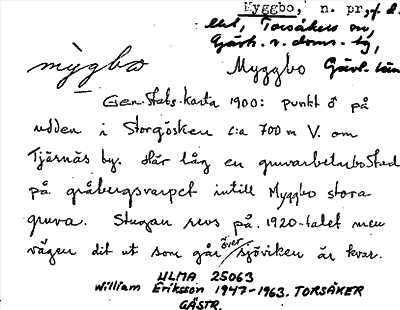 Myggbo, n. pr., f. d.
lht, Torsåkers sn,
Gävle. v. doms. by,
mỳgbω Myggbo Gävl. län
Gen.Stabs.karta 1900: punkt å på
udden i Storgösken c:a 700 m V. om
Tjärnäs by. Här låg en gruvarbetarbostad
på gråbergsvarpet intill Myggbo stora-
gruva. Stugan revs på 1920-talet men
vägen dit ut som går över sjöviken är kvar.
ULMA 25063
William Eriksson 1947-1963. TORSÅKER
GÄSTR.